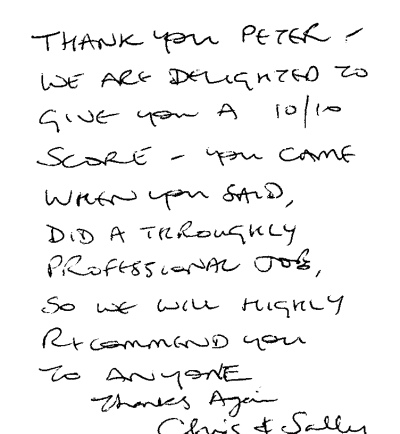 THANK YOU PETER -
WE ARE DELIGHTED TO
GIVE YOU A 10/10
SCORE - YOU CAME
WHEN YOU SAID,
DID A THROUGHLY
PROFESSIONAL JOB,
SO WE WILL HIGHLY
RECOMMEND YOU
TO ANYONE
Thanks Again
Chris & Sally